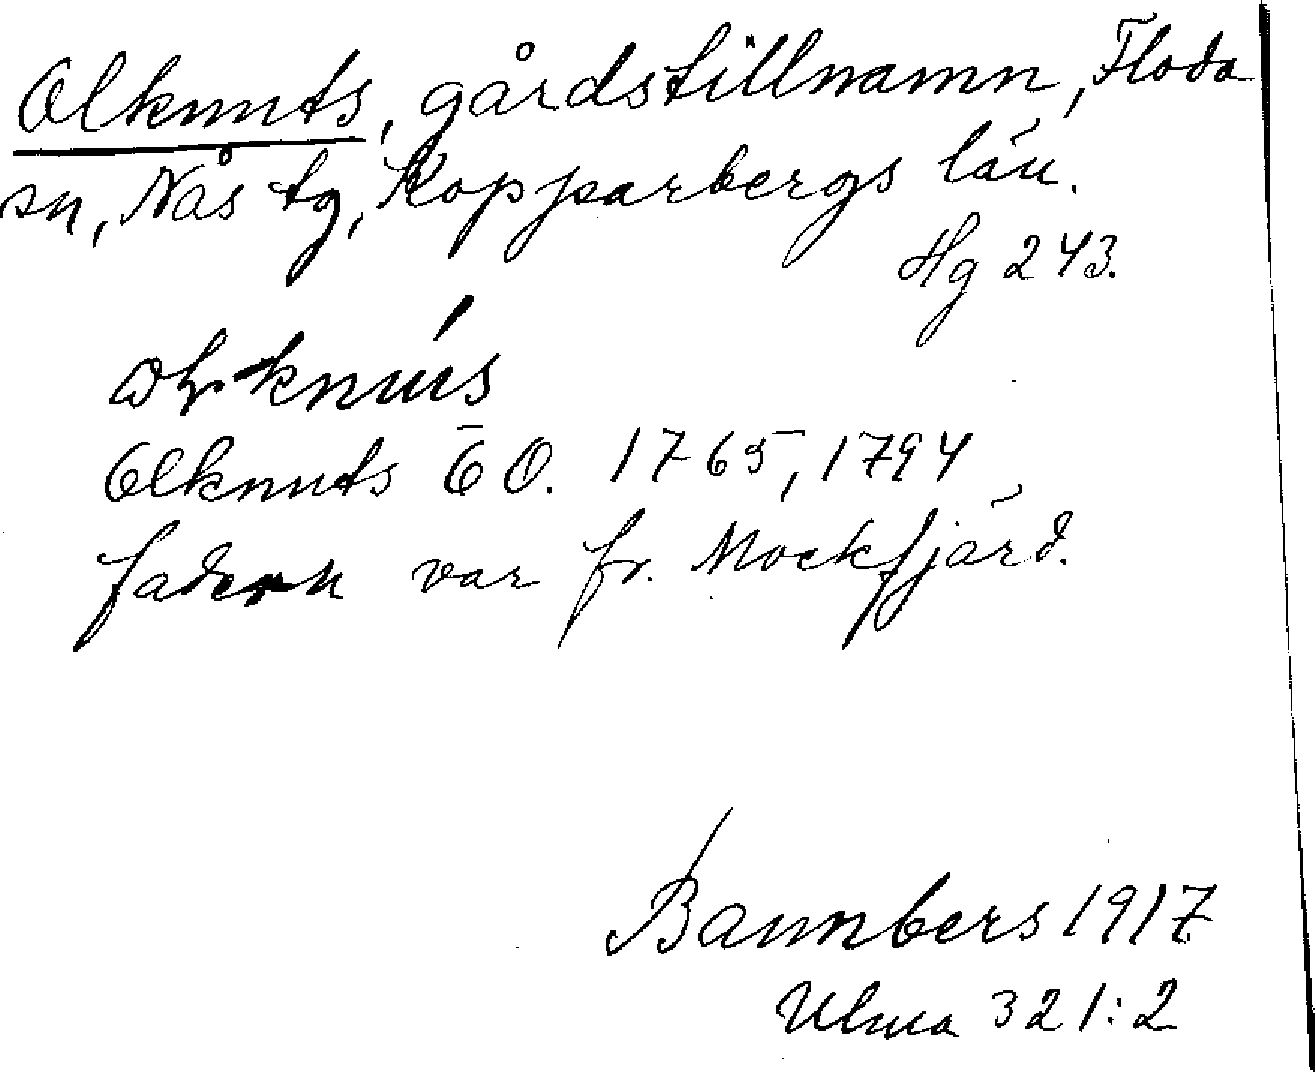 Olknuts, gårdstillnamn, Floda
sn, Nås tg, Kopparbergs län.
Hg 243.
Olknuts ÖO. 1765, 1794
fadern var fr. Mockfjärd.
Bannbers 1917
Ulma 321:2